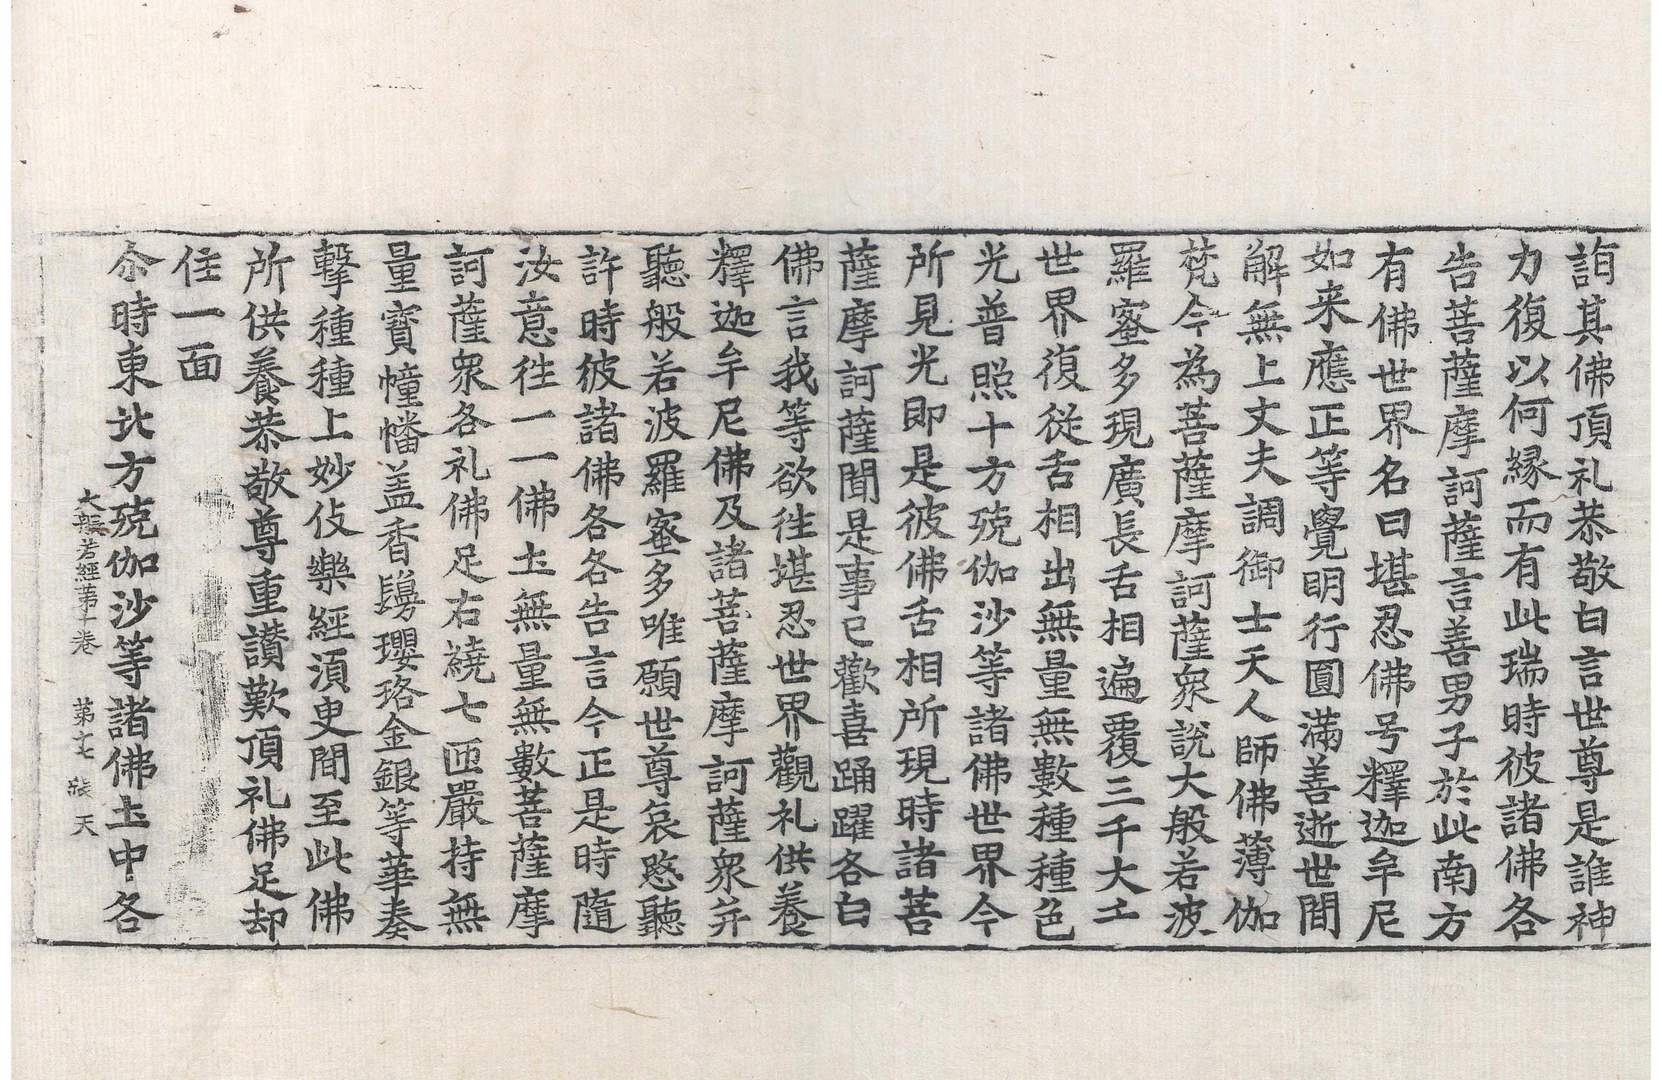 詣其佛頂礼恭敬白言世尊是誰神
力復以何縁而有此瑞時彼諸佛各
告菩薩摩訶薩言善男子於此南方
有佛世界名曰堪忍佛号釋迦牟尼
如来應正等覺明行圓滿善逝世間
解無上丈夫調御士天人師佛薄伽
梵今為菩薩摩訶薩衆說大般若波
羅蜜多現廣長舌相遍覆三千大千
世界復從舌相出無量無數種種色
光普照十方殑伽沙等諸佛世界今
所見光即是彼佛舌相所現時諸菩
薩摩訶薩聞是事已歡喜踊躍各白
佛言我等欲往堪忍世界觀礼供養
釋迦牟尼佛及諸菩薩摩訶薩衆并
聽般若波羅蜜多唯願世尊哀愍聽
許時彼諸佛各各告言今正是時隨
汝意往一一佛土無量無數菩薩摩
訶薩衆各礼佛足右繞七匝嚴持無
量寶幢幡盖香鬘瓔珞金銀等華奏
擊種種上妙伎樂經須臾間至此佛
所供養恭敬尊重讚歎頂礼佛足却
住一面
尒時東北方殑伽沙等諸佛土中各
大般若經第十卷 第七張 天